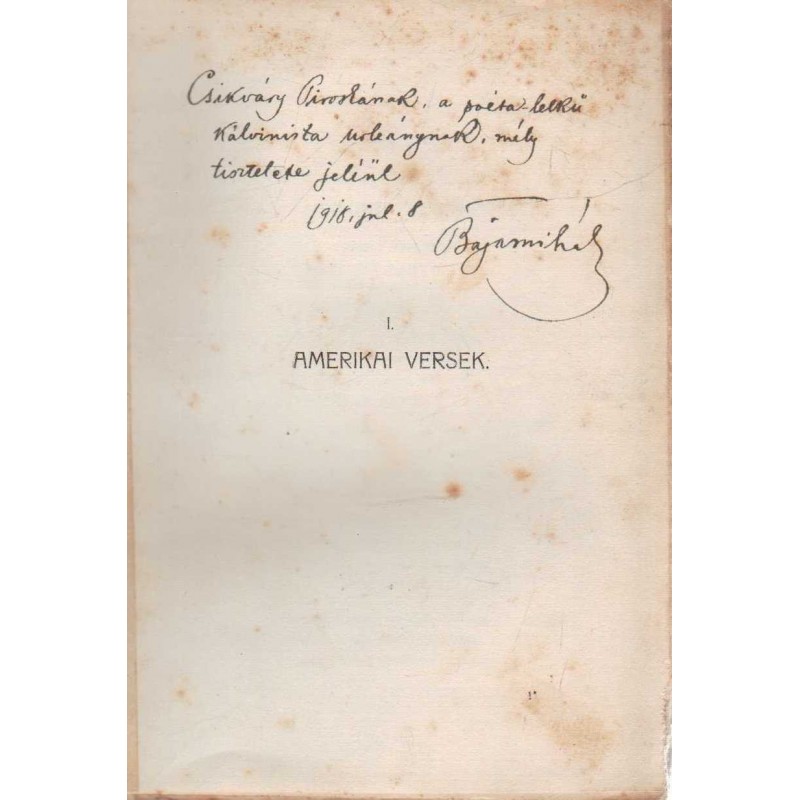 Csikváry Piroskának, a poéta-lelkű
kálvinista urleánynak, mély
tisztelete jeléül
1918. jul. 8
Baja Mihály
I.
AMERIKAI VERSEK.